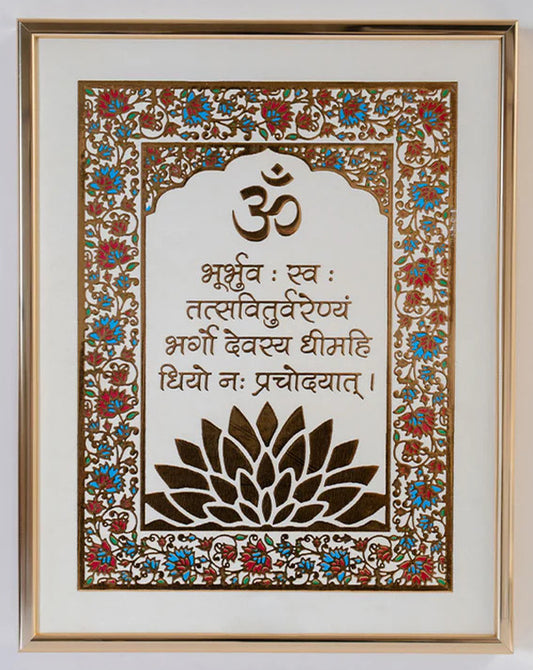 ॐ
भूर्भुव : स्व :
तत्सवितुर्वरेण्यं
भर्गो देवस्य धीमहि
धियो नः प्रचोदयात् ।